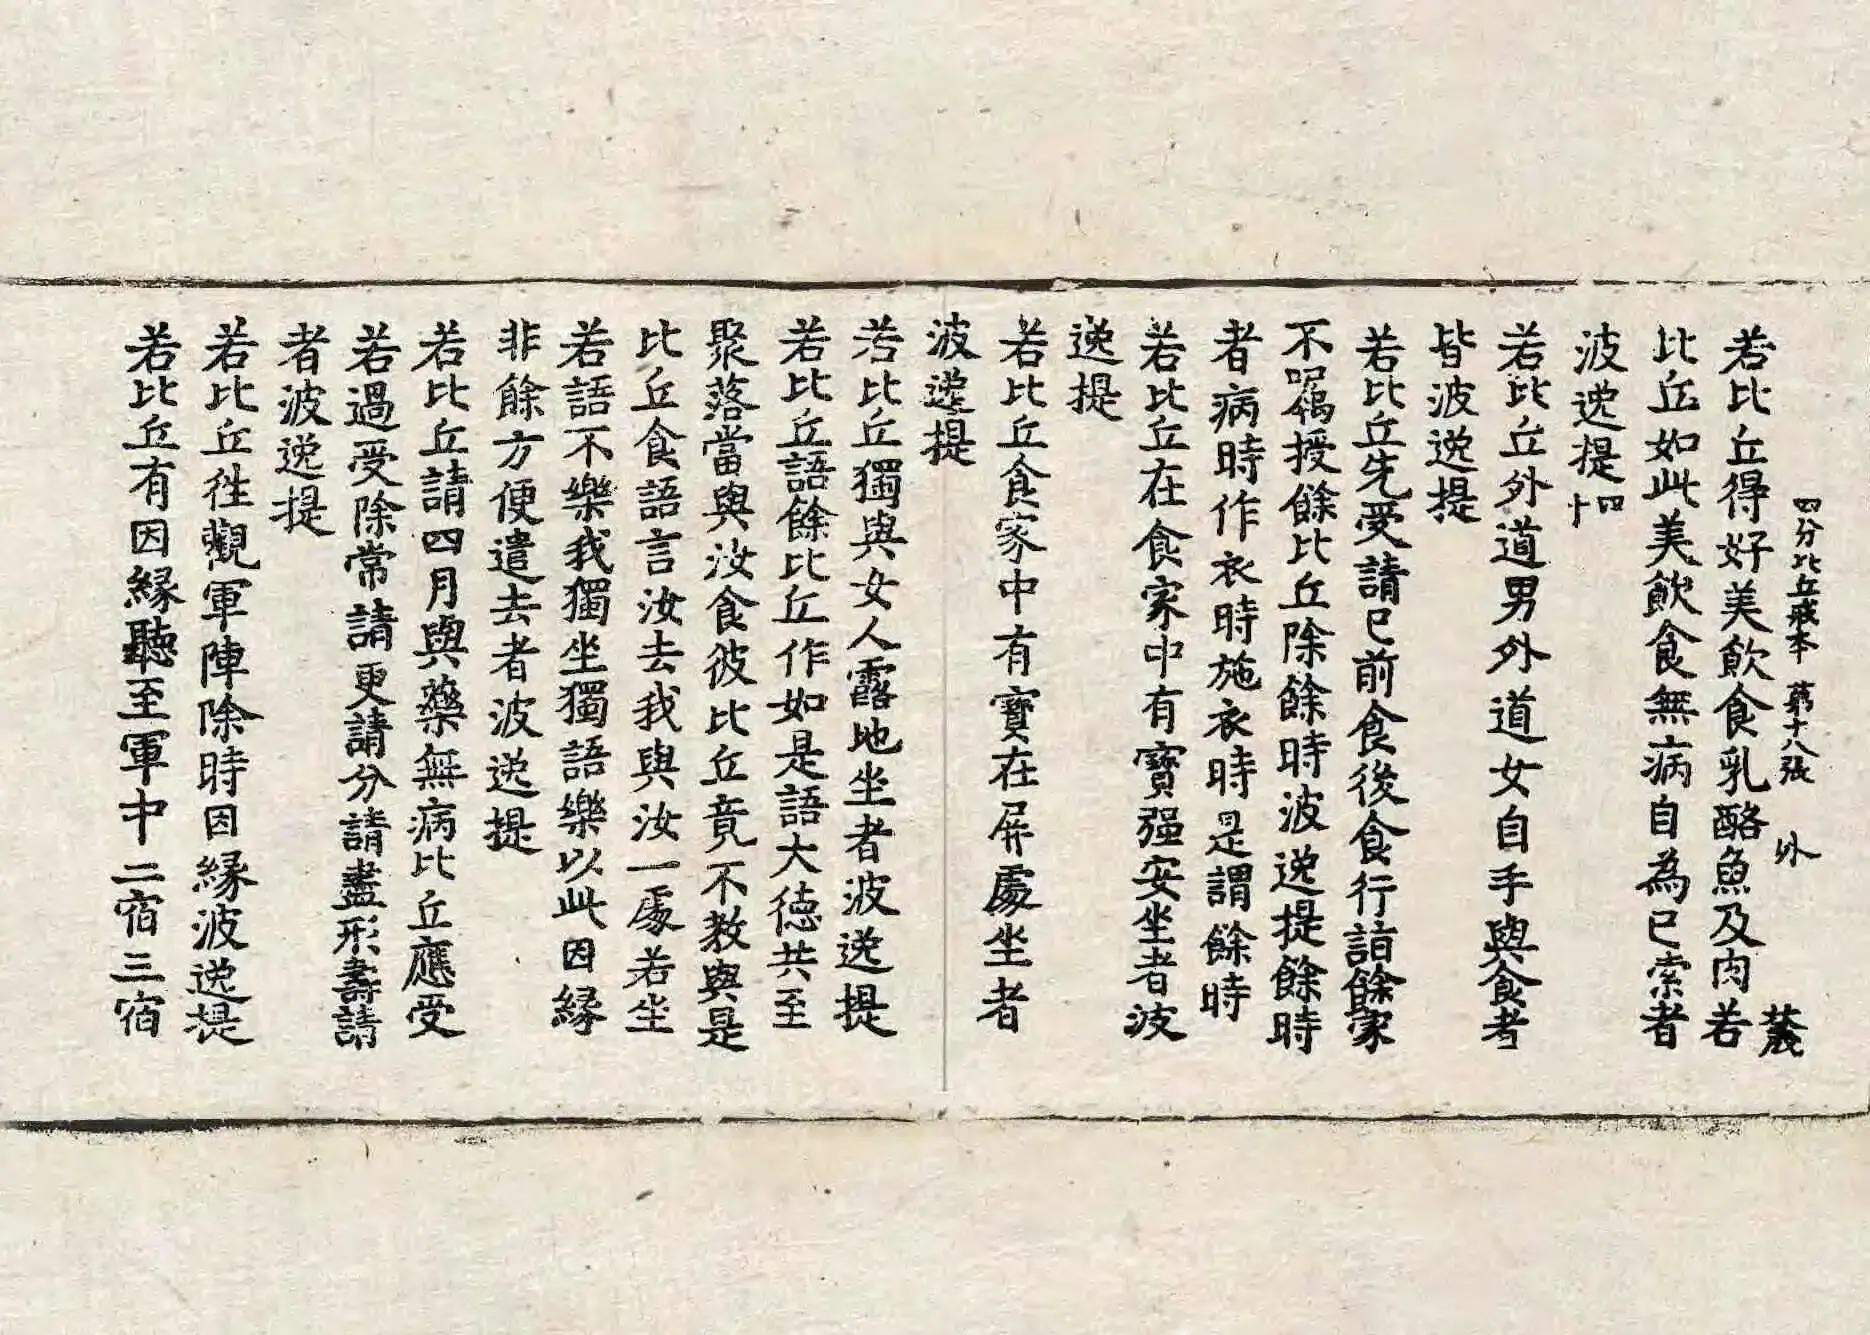 四分比丘戒本 第十八張 外
若比丘得好美飲食乳酪魚及肉若
比丘如此美飲食無病自為已索者
波逸提四十
若比丘外道男外道女自手與食者
皆波逸提
若比丘先受請已前食後食行詣餘家
不囑授餘比丘除餘時波逸提餘時
者病時作衣時施衣時是謂餘時
若比丘在食家中有寶强安坐者波
逸提
若比丘食家中有寶在屏處坐者
波逸提
若比丘獨與女人露地坐者波逸提
若比丘語餘比丘作如是語大德共至
聚落當與汝食彼比丘竟不教與是
比丘食語言汝去我與汝一處若坐
若語不樂我獨坐獨語樂以此因緣
非餘方便遣去者波逸提
若比丘請四月與藥無病比丘應受
若過受除常請更請分請盡形壽請
者波逸提
若比丘往觀軍陣除時因緣波逸提
若比丘有因緣聽至軍中二宿三宿